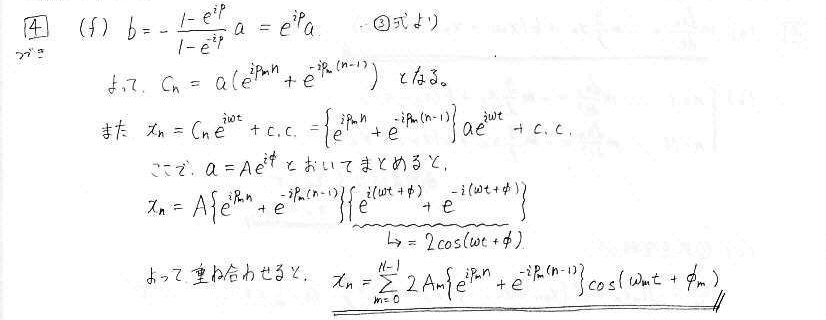 4 (f) b = - (1-e^{ip})/(1-e^{-ip}) a = e^{ip} a ③式より
つづき
よって、Cn = a(e^{ipmn} + e^{-ipm(n-1)}) となる。
また xn = Cn e^{iωt} + c.c. = {e^{ipmn} + e^{-ipm(n-1)}} a e^{iωt} + c.c.
ここで、a = Ae^{iφ} とおいてまとめると、
xn = A{e^{ipmn} + e^{-ipm(n-1)}}{e^{i(ωt+φ)} + e^{-i(ωt+φ)}}
↳ = 2cos(ωt+φ)
よって重ね合わせると、 xn = Σ_{m=0}^{N-1} 2Am{e^{ipmn} + e^{-ipm(n-1)}}cos(ωmt + φm)